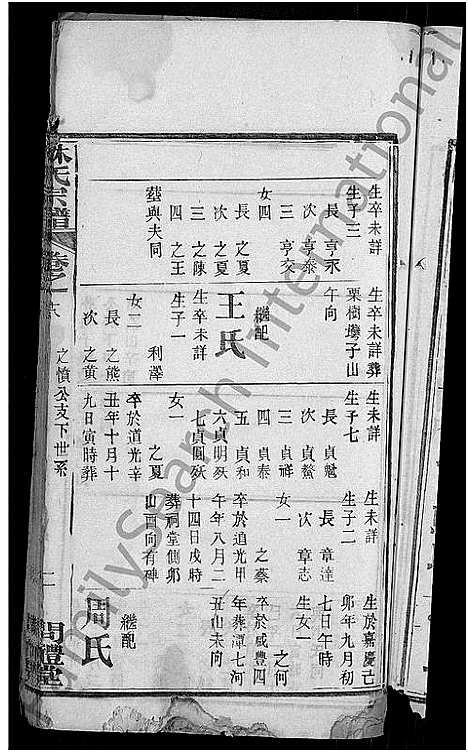 生卒未詳
生子三
長 亨永
次 亨泰
三 亨交
女四
長 之夏
次 之夏
三 之陳
四 之王
塟與夫同
生卒未詳葬
栗樹塆子山
午向
繼配
王氏
生卒未詳
生子一
利澤
女二
長 之熊
次 之黄
生未詳
生子七
長 貞魁
次 貞鰲
三 貞祥
四 貞泰
五 貞和
六 貞明殀
七 貞圓殀
女一
之夏
卒於道光辛
丑年十月十
九日寅時葬
生未詳
生子二
長 章達
次 章志
女一
之蔡
卒於道光甲
午年八月二
十四日戌時
葬祠堂側卯
山酉向有碑
生於嘉慶己
卯年九月初
七日午時
生女一
之何
卒於咸豐四
年葬潭七河
丑山未向
繼配
周氏
林氏宗譜
卷之
之憤公支下世系
二
問禮堂
FamilySearch International